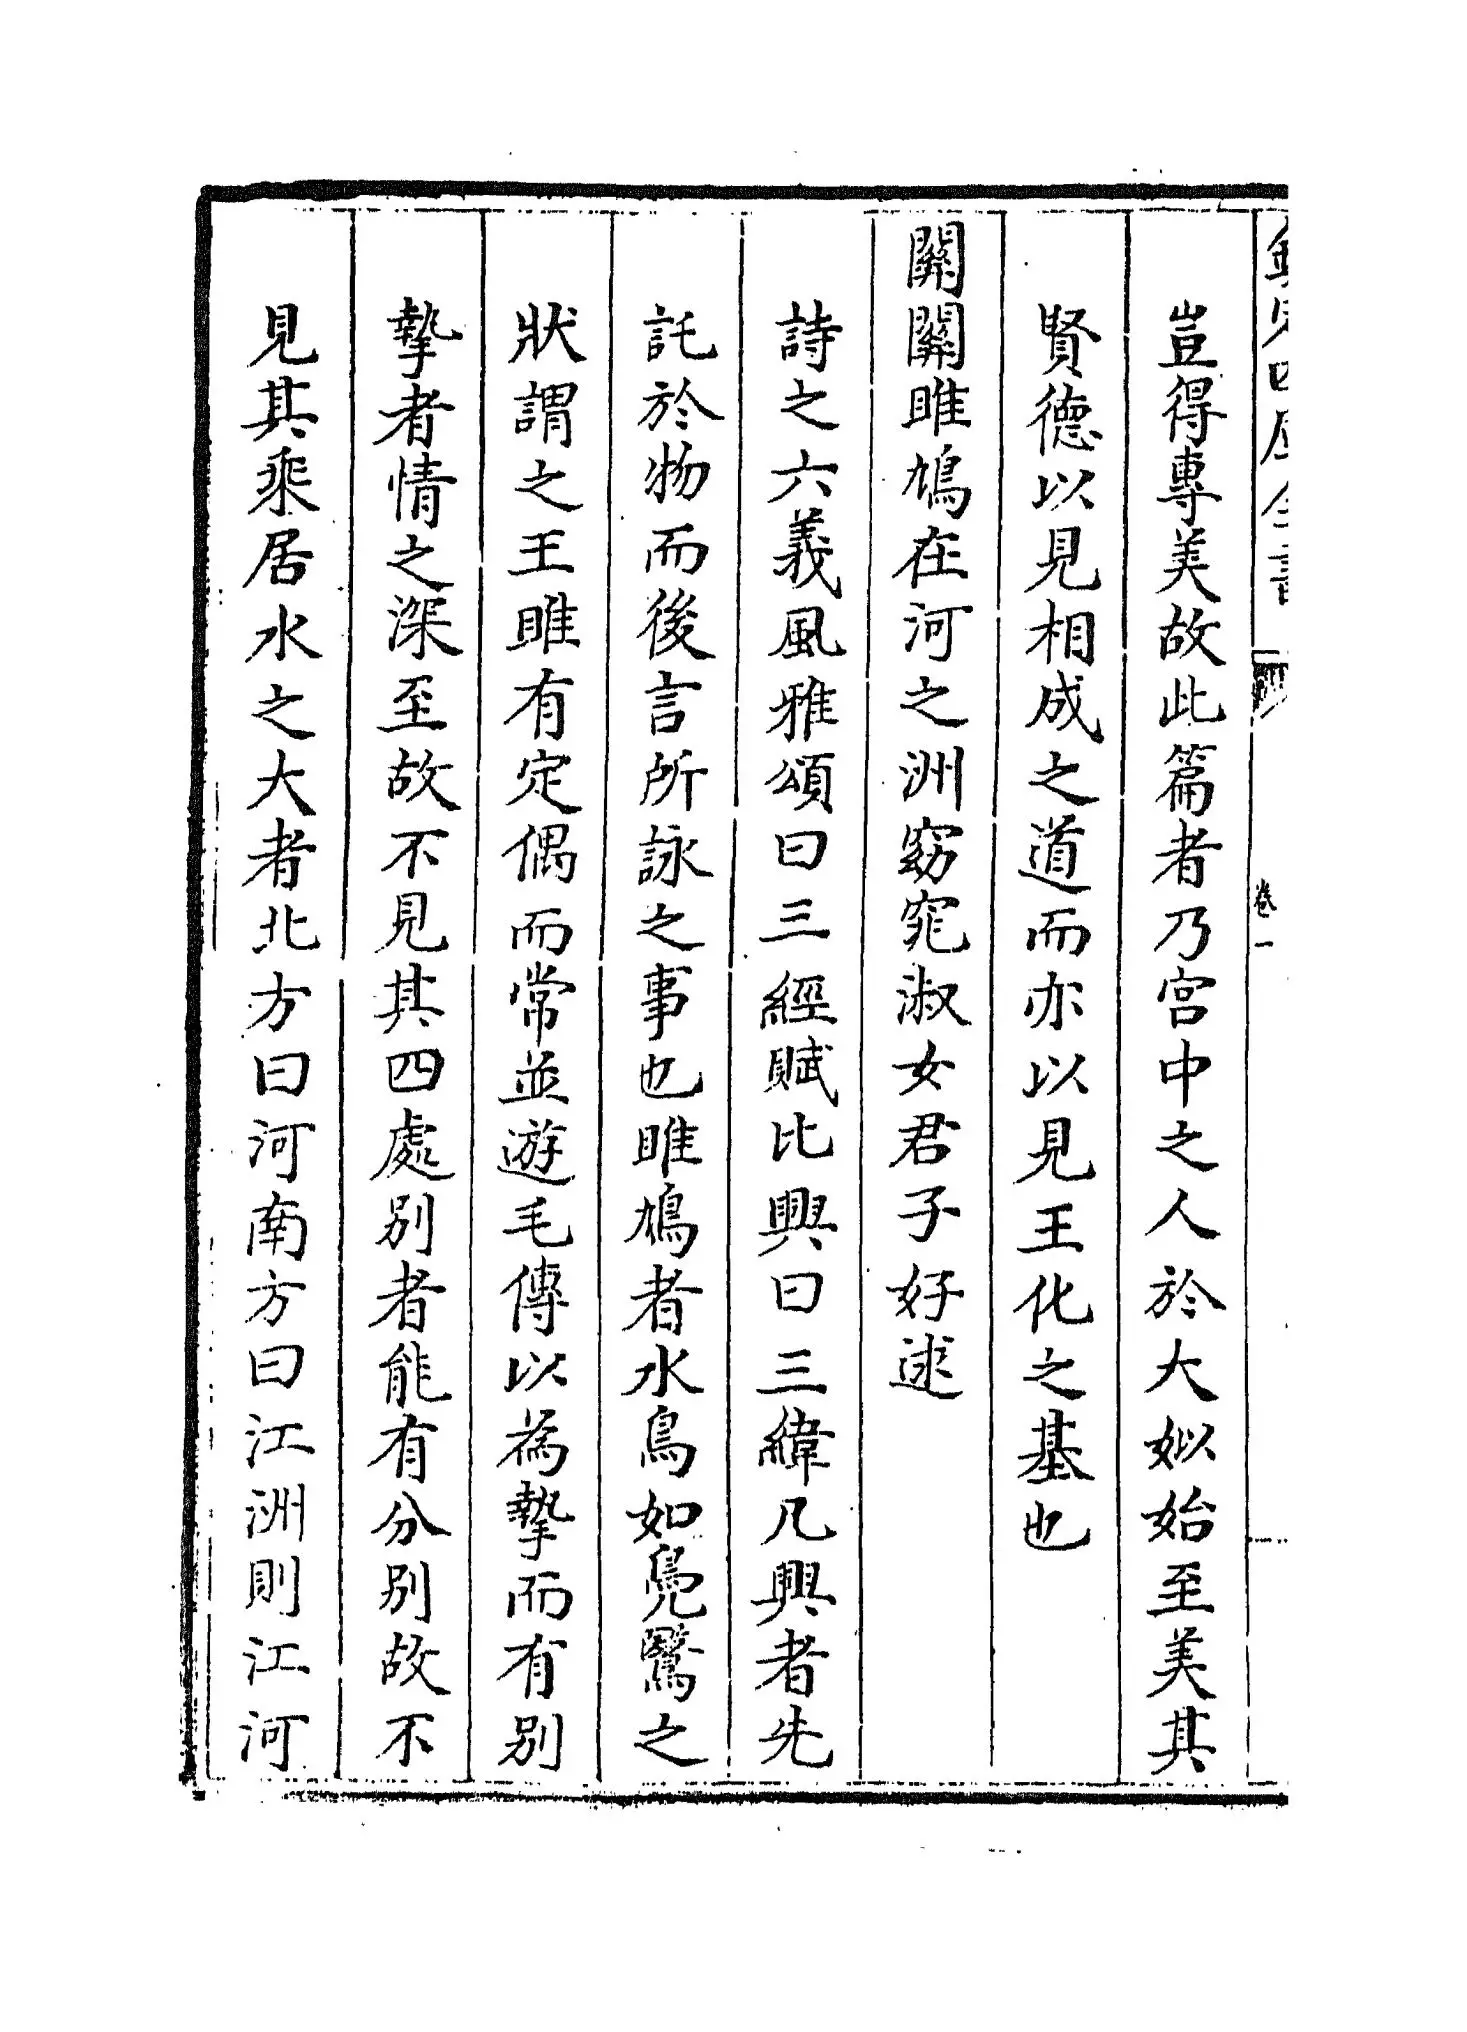 欽定四庫全書
卷一
豈得專美故此篇者乃宮中之人於大姒始至美其
賢德以見相成之道而亦以見王化之基也
關關雎鳩在河之洲窈窕淑女君子好逑
詩之六義風雅頌曰三經賦比興曰三緯凡興者先
託於物而後言所詠之事也雎鳩者水鳥如鳧鷖之
狀謂之王雎有定偶而常並遊毛傳以為摯而有別
摯者情之深至故不見其四處別者能有分別故不
見其乘居水之大者北方曰河南方曰江洲則江河